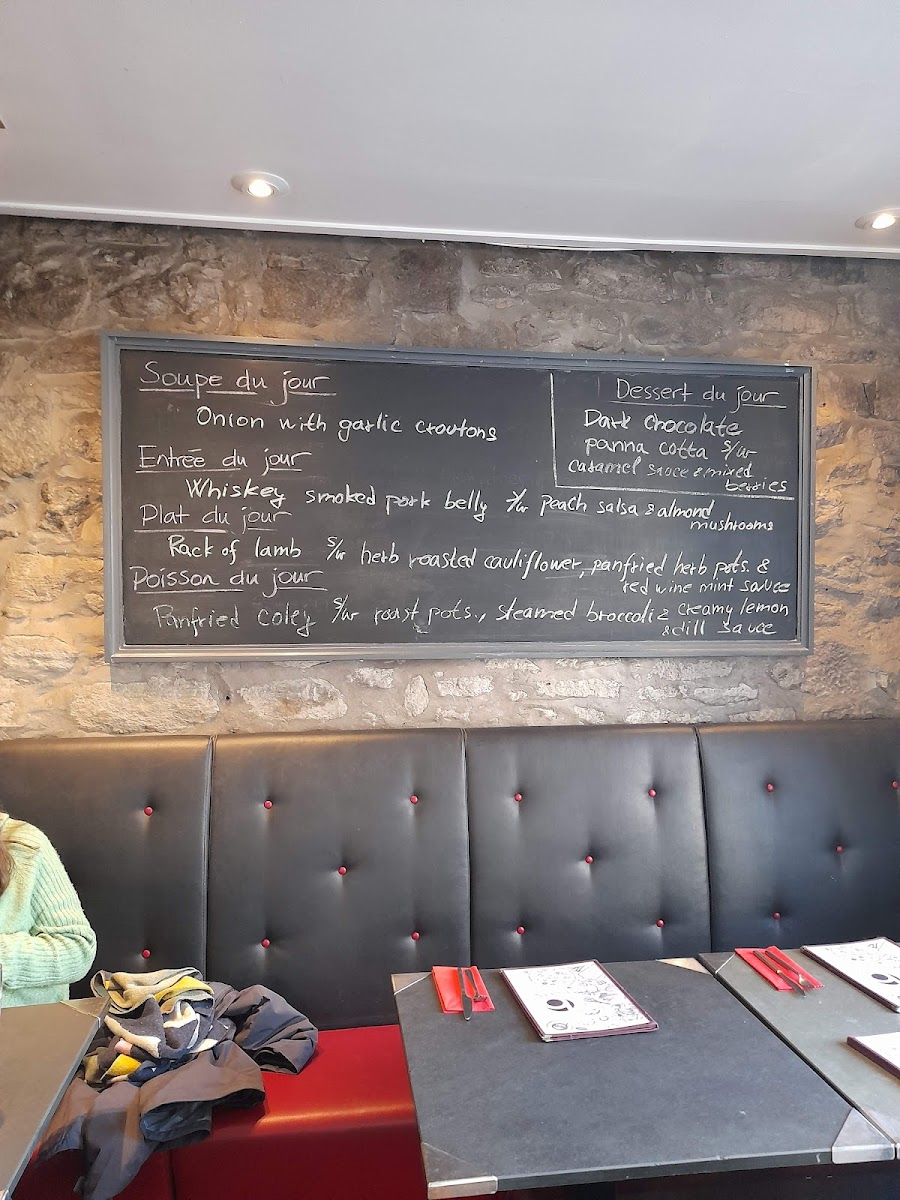 Soupe du jour
Onion with garlic croutons
Entrée du jour
Whiskey smoked pork belly s/w peach salsa & almond
mushrooms
Plat du jour
Rack of lamb s/w herb roasted cauliflower, panfried herb pots. &
red wine mint sauce
Poisson du jour
Panfried Coley s/w roast pots., steamed broccoli & creamy lemon
& dill sauce
Dessert du jour
Dark chocolate
panna cotta s/w
caramel sauce & mixed
berries